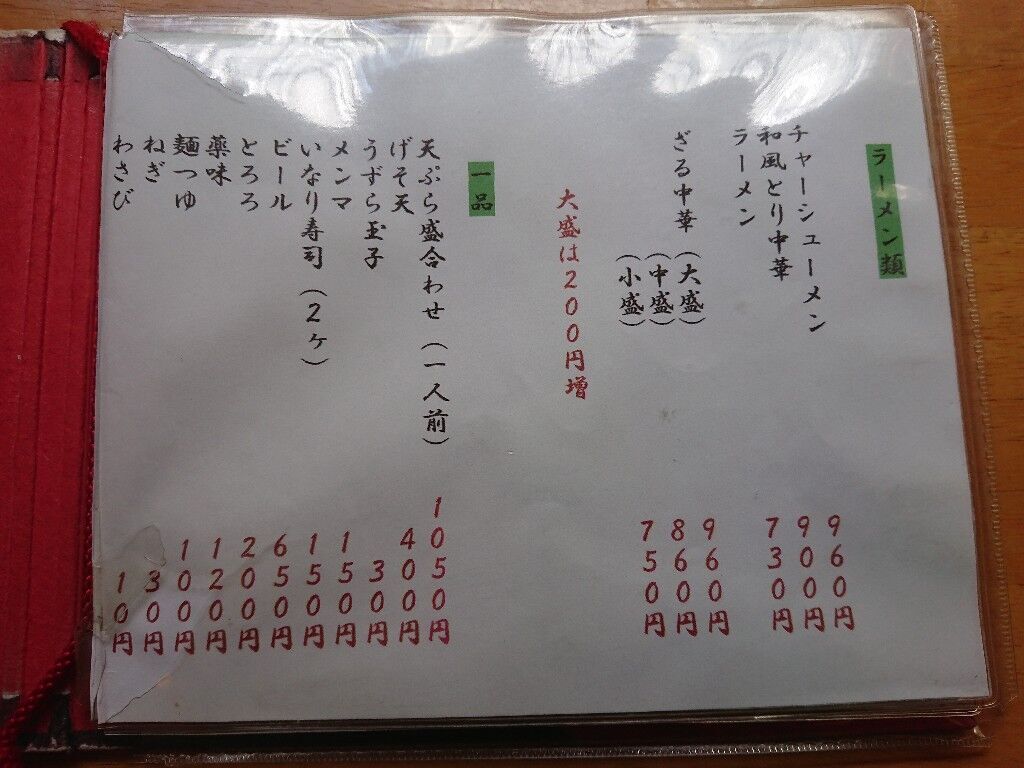 ラーメン類
チャーシューメン 960円
和風とり中華 900円
ラーメン 730円
ざる中華(大盛) 960円
(中盛) 860円
(小盛) 750円
大盛は200円増
一品
天ぷら盛合わせ(一人前) 1050円
げそ天 400円
うずら玉子 30円
メンマ 150円
いなり寿司(2ヶ) 150円
ビール 650円
とろろ 200円
薬味 120円
麺つゆ 100円
ねぎ 30円
わさび 10円